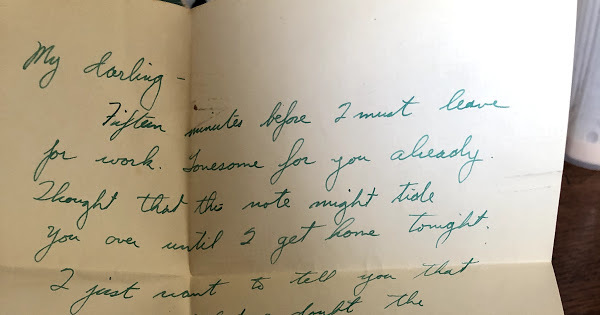 My darling -
Fifteen minutes before I must leave
for work. Lonesome for you already.
Thought that this note might tide
you over until I get home tonight.
I just want to tell you that
doubt the